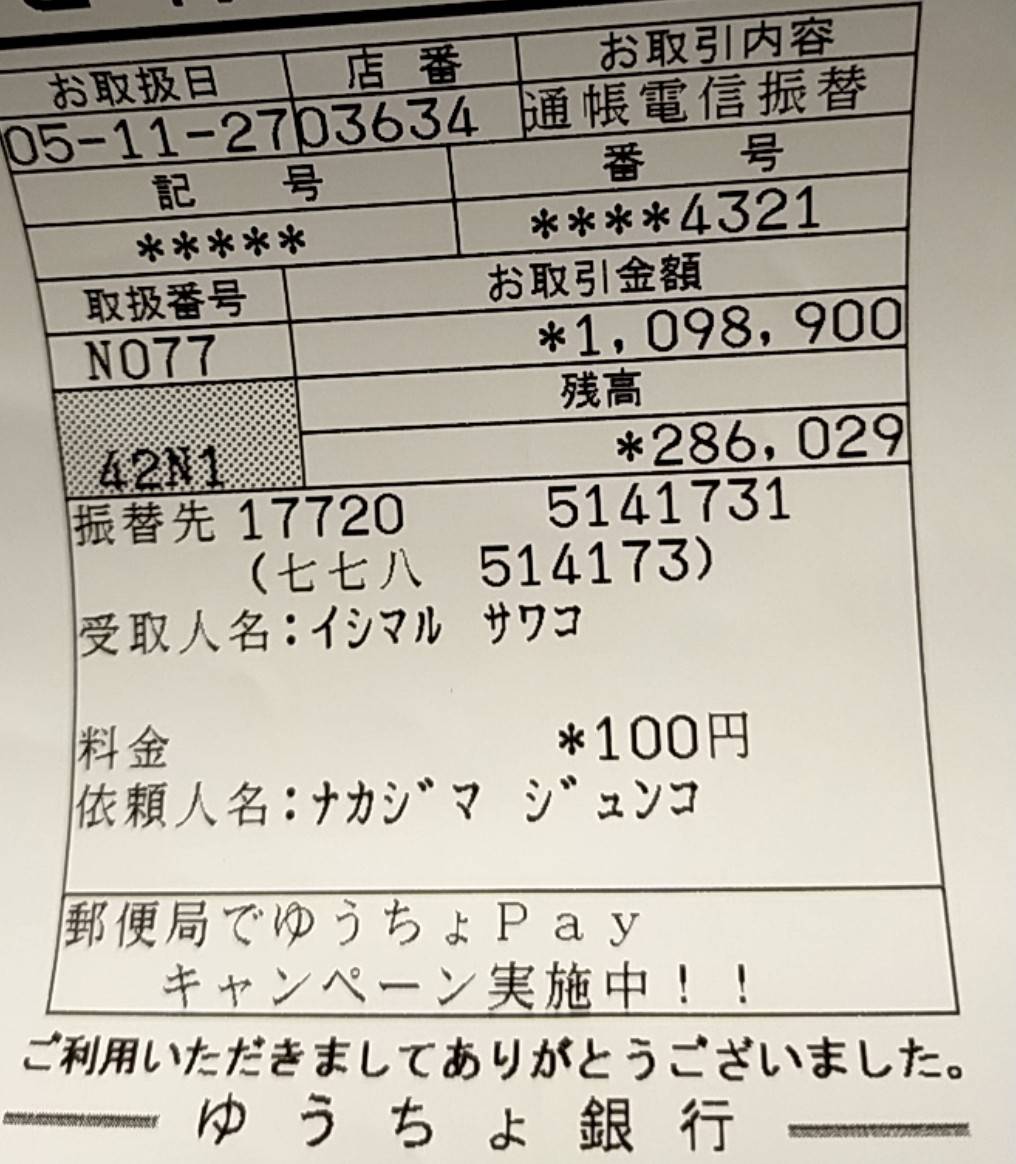 お取扱日 店番 お取引内容
05-11-27 03634 通帳電信振替
記号 番号
***** ****4321
取扱番号 お取引金額
N077 *1,098,900
残高
42N1 *286,029
振替先 17720 5141731
(七七八 514173)
受取人名:イシマル サワコ
料金 *100円
依頼人名:ナカジマ ジュンコ
郵便局でゆうちょPay
キャンペーン実施中!!
ご利用いただきましてありがとうございました。
ゆうちょ銀行